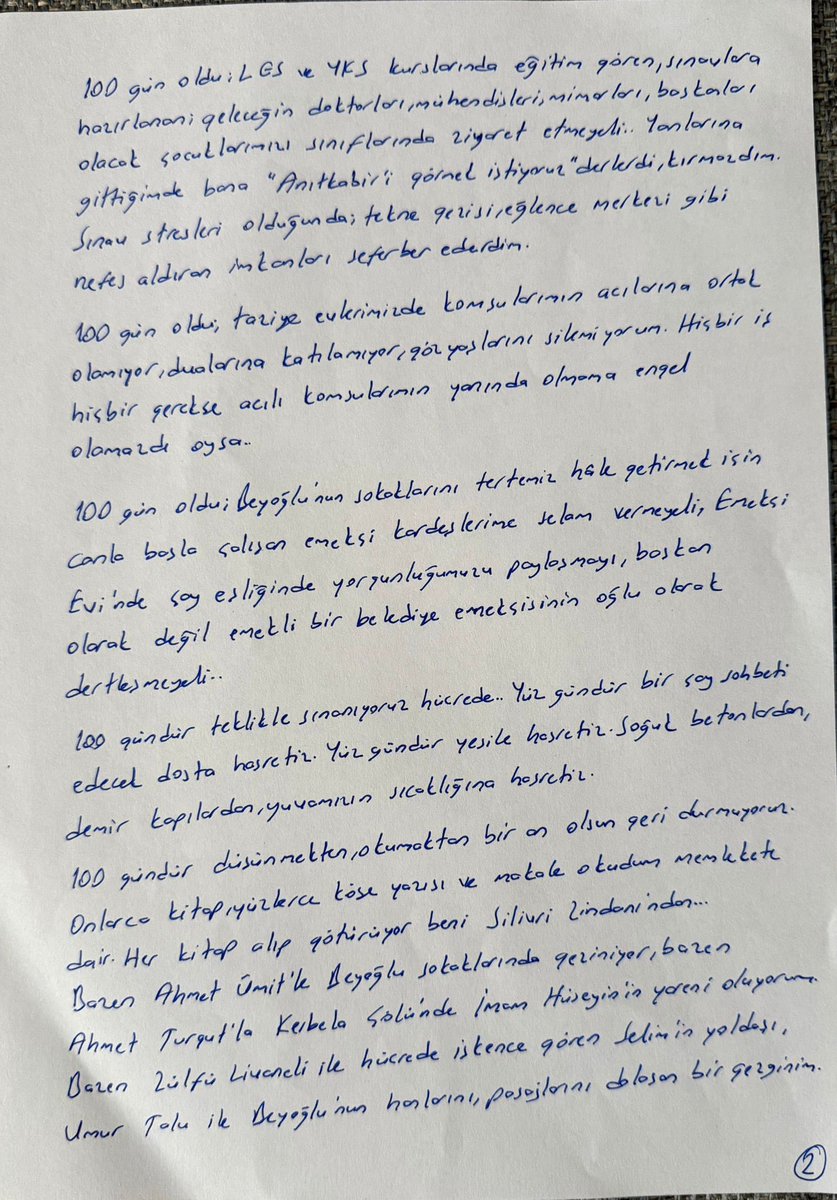 100 gün oldu; LGS ve YKS kurslarında eğitim gören, sınavlara
hazırlanan; geleceğin doktorları, mühendisleri, mimarları, başkanları
olacak çocuklarımızı sınıflarında ziyaret etmeyeli.. Yanlarına
gittiğimde bana "Anıtkabir'i görmek istiyoruz" derlerdi, kırmazdım.
Sınav stresleri olduğunda; tekne gezisi, eğlence merkezi gibi
nefes aldıran imkanları seferber ederdim.
100 gün oldu; taziye evlerimizde komşularımın acılarına ortak
olamıyor, dualarına katılamıyor, göz yaşlarını silemiyorum. Hiçbir iş
hiçbir gerekçe acılı komşularımın yanında olmama engel
olamazdı oysa..
100 gün oldu; Beyoğlu'nun sokaklarını tertemiz hâle getirmek için
canla başla çalışan emekçi kardeşlerime selam vermeyeli, Emekçi
Evi'nde çay eşliğinde yorgunluğumuzu paylaşmayı, başkan
olarak değil emekli bir belediye emekçisinin oğlu olarak
dertleşmeyeli..
100 gündür teklikle sınanıyoruz hücrede.. Yüz gündür bir çay sohbeti
edecek dosta hasretiz. Yüz gündür yeşile hasretiz. Soğuk betonlardan,
demir kapılardan, yuvamızın sıcaklığına hasretiz.
100 gündür düşünmekten, okumaktan bir an olsun geri durmuyoruz.
Onlarca kitap, yüzlerce köşe yazısı ve makale okudum memlekete
dair. Her kitap alıp götürüyor beni Silivri Zindanı'ndan...
Bazen Ahmet Ümit'le Beyoğlu sokaklarında geziniyor, bazen
Ahmet Turgut'la Kerbela Çölü'nde İmam Hüseyin'in yareni oluyorum.
Bazen Zülfü Livaneli ile hücrede işkence gören Selim'in yoldaşı,
Umur Talu ile Beyoğlu'nun hanlarını, pasajlarını dolaşan bir gezginim.
2